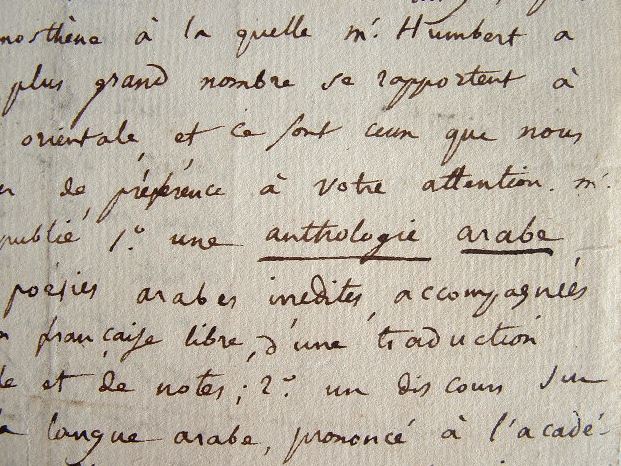 nosthène à la quelle mr. Humbert a
plus grand nombre se rapportent à
orientale, et ce sont ceux que nous
de préférence à votre attention. mr.
publié 1.º une anthologie arabe
poésies arabes inédites, accompagnées
française libre, d'une traduction
et de notes; 2.º un discours sur
langue arabe, prononcé à l'acadé-